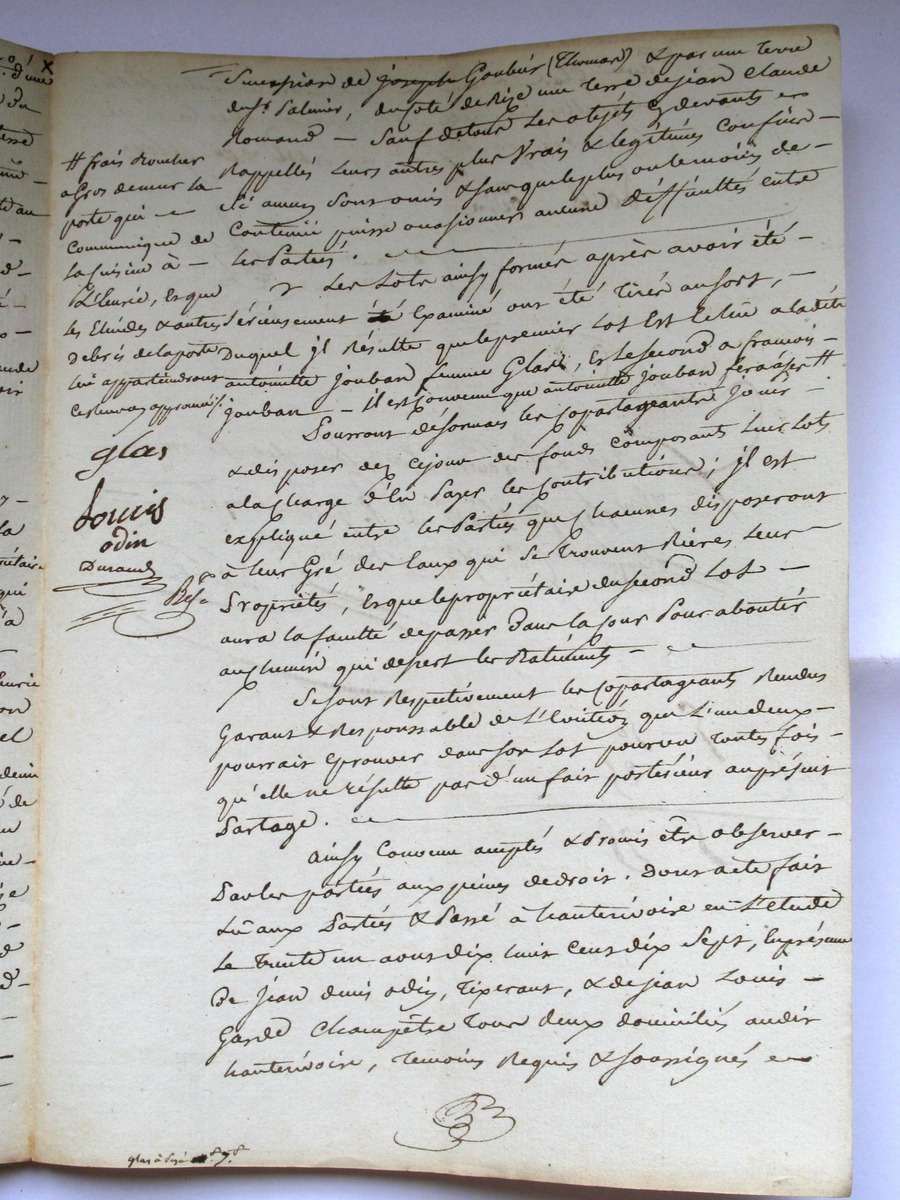 succession de joseph Goubier (Thomas) & par une Terre
du sr. Palmier, du coté de Bize une Terre de jean Claude
Romand — Sauf de tous les objets cy devants
Rappellés leurs autres plus Vrais & legitimes Confins —
Si aucuns sont omis & sans que le plus ou le moins de —
Contenüe puisse occasionner aucune difficultés entre
les Parties.
Les Lots ainsy formés après avoir été —
Sérieusement Examiné ont été Tirés au sort, —
Duquel il Résulte que le premier lot Est Echu a la dite
antoinette jouban femme Glas, et le second a francois —
jouban — il est Convenu que antoinette jouban fera à ses #
Pourront désormais les Copartageants jouir
& disposer dez cejour des fonds Composants leur lots
a la Charge d'en Payer les Contributions; il est
expliqué entre les Parties que Chacunes disposeront
à leur Gré des Eaux qui se Trouvent Rières leur
Propriétés, et que le propriétaire du second Lot —
aura la faculté de passer Dans la Cour Pour aboutir
au Chemin qui desert les Batiments —
Se sont Respectivement les Copartageants Rendus
Garant & Responssable de l'Eviction que l'un deux —
pourrait éprouver dans son Lot pourvu Toutes fois —
qu'elle ne résulte pas d'un fait postérieur au présent
Partage.
Ainsy Convenu accepté & Promis être observer —
Par les parties aux peines de droit. Dont acte fait
Lu aux Parties & Passé à hauterivoire en L'etude
Le Trente un aout dix huit Cent dix Sept, En présence
De jean denis odin, Tixerant, & de jean Louis —
Garde Champêtre Tous deux domiciliés audit
hauterivoire, Temoins Requis & soussignés
# frais boucher
a Gros de mur la
porte qui —
Communique de
la Cuisine à —
L'Ecurie, et que
les Etuides & autres
Debris de la porte
lui appartiendront
Ce renvoy approuvé
glas
Louis
odin
Durand